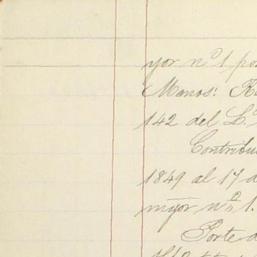 yor nº 1 po
Manos: R
142 del L.º
Contribu
1849 al 17 d
mayor nº 1.
Parte d